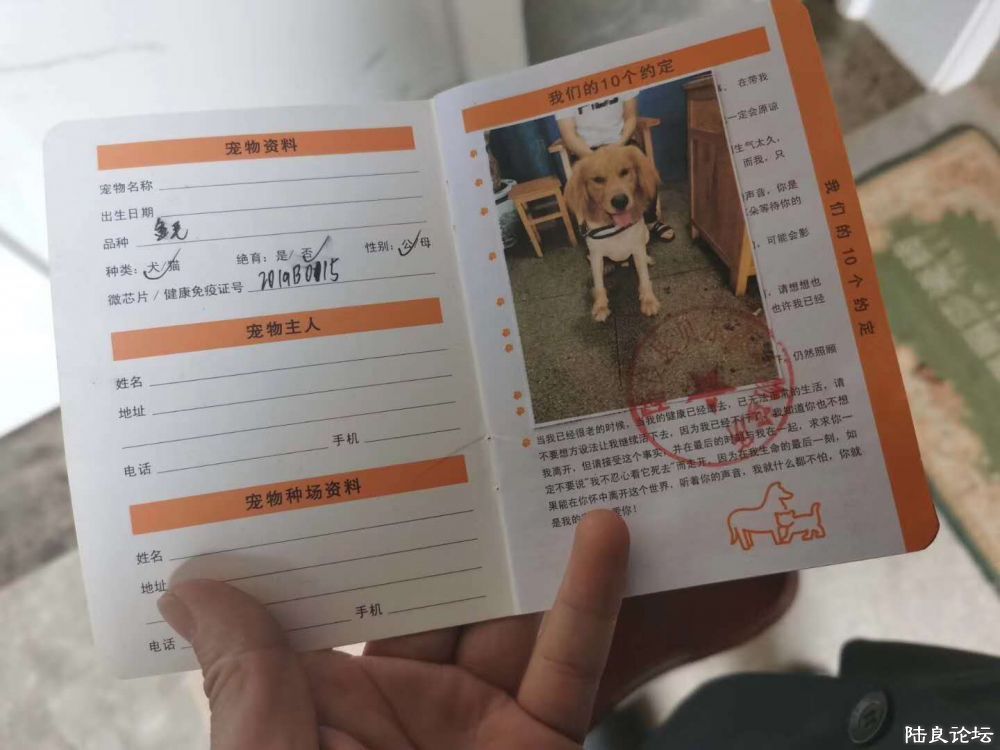 宠物资料
宠物名称
出生日期
品种 金毛
种类：犬/猫 绝育：是/否 性别：公/母
微芯片/健康免疫证号 2019B0015
宠物主人
姓名
地址
手机
电话
宠物种场资料
姓名
地址
手机
电话
我们的10个约定
在带我
一定会原谅
生气太久，
而我，只
声音，你是
朵等待你的
可能会影
请想想也
也许我已经
仍然照顾
当我已经很老的时候，当我的健康已经逝去，已无法正常的生活，请
不要想方设法让我继续活下去，因为我已经不行了，我知道你也不想
我离开，但请接受这个事实，并在最后的时刻与我在一起，求求你一
定不要说"我不忍心看它死去"而走开，因为在我生命的最后一刻，如
果能在你怀中离开这个世界，听着你的声音，我就什么都不怕，你就
是我的 爱你！
我们的10个约定
陆良论坛